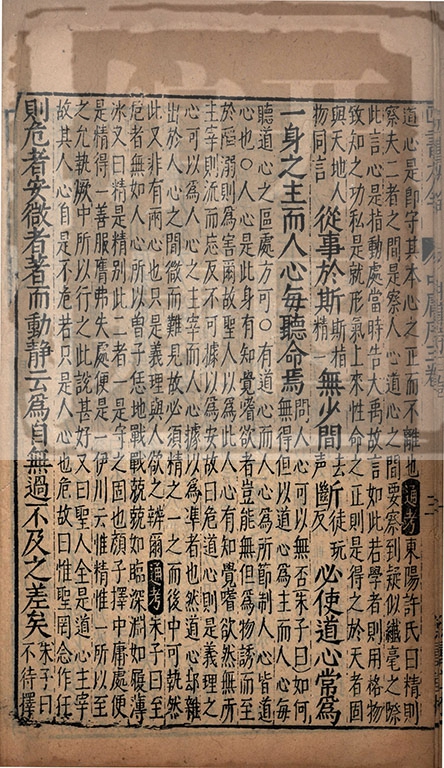 道心是即守其本心之正而不離也通考東陽許氏曰精則
察夫二者之間是察人心道心之間要察到疑似纖毫之際
此言心是指動處當時告大禹故言如此若學者則用格物
致知之功私是就形氣上來性命之正則是得之於天者固
與天地人
物同言
從事於斯
斯指
精一
無少間
去
聲
斷
徒玩
反
必使道心常為
一身之主而人心每聽命焉
問人心可以無否朱子曰如何
無得但以道心為主而人心每
聽道心之區處方可○有道心而人心為所節制人心皆道
心也○人心是此身有知覺嗜欲者豈能無但為物誘而至
於陷溺則為害爾故聖人以為此人心有知覺嗜欲然無所
主宰則流而忘反不可據以為安故曰危道心則是義理之
心可以為人心之主宰而人心據以為準者也然道心却雜
出於人心之間微而難見故必須精之一之而後中可執然
此又非有兩心也只是義理與人欲之辨爾通考朱子曰至
危者無如人心所以曾子恁地戰戰兢兢如臨深淵如履薄
冰又曰精是精別此二者一是守之固也顏子擇中庸處便
是精得一善服膺弗失處便是一伊川云惟精惟一所以至
之允執厥中所以行之此說甚好又曰聖人全是道心主宰
故其人心自是不危若只是人心也危故曰惟聖罔念作狂
則危者安微者著而動靜云為自無過不及之差矣
朱子曰
不待擇